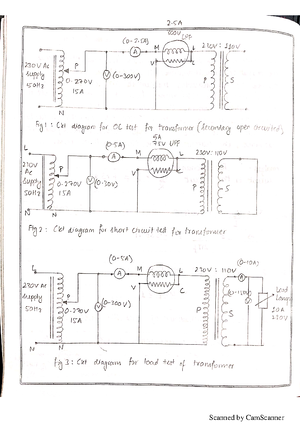 2.5A
(0-2.5A) M 300V LPF L 230V : 230V
A
230V AC
Supply
50Hz
P V (0-300V) V C P S
0-270V
15A
N N
Fig 1: Ckt diagram for OC test for transformer (Secondary open circuited)
5A
L (0-5A) M 75V UPF L 230V : 110V
A
230V
AC
Supply
50Hz
P V (0-30V) V C P S
0-270V
15A
N N
Fig 2: Ckt diagram for short circuit test for transformer
L (0-5A) M L 230V : 110V (0-10A)
A A
230V AC
Supply
50Hz
P V (0-300V) V C P S (0-150V) Load
0-270V Lamp
15A 10A
230V
N N
Fig 3: Ckt diagram for load test of transformer
Scanned by CamScanner